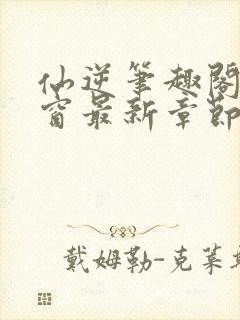 仙逆笔趣阁
窗最新章节
戴姆勒-克莱